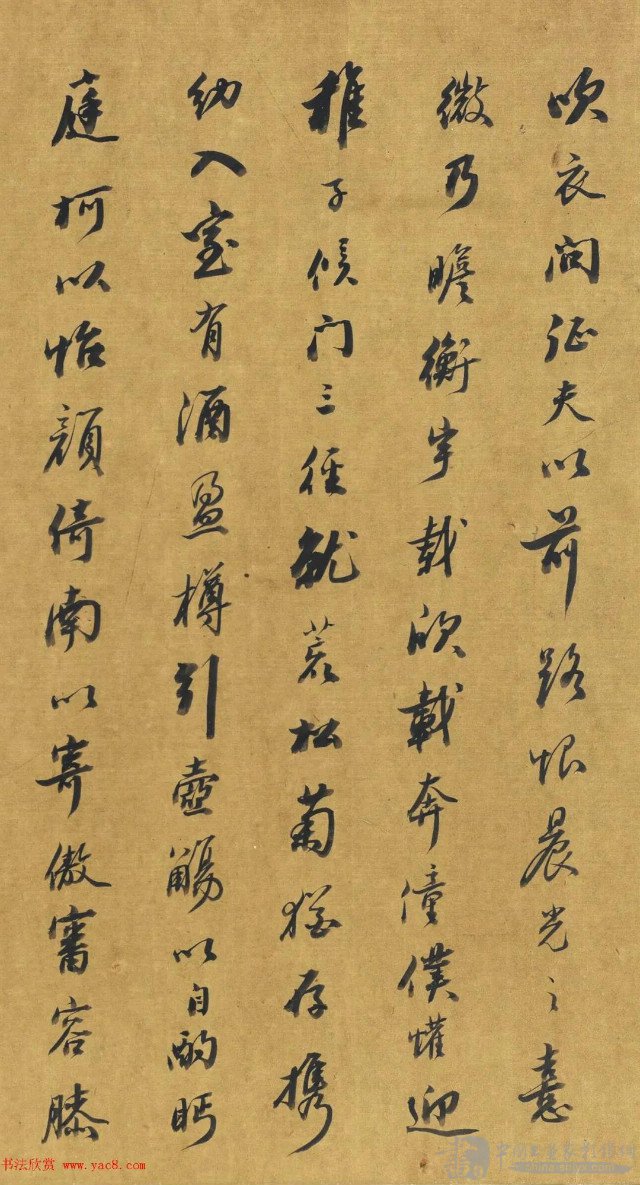 吹衣問征夫以前路恨晨光之熹
微乃瞻衡宇載欣載奔僮僕懽迎
稚子候門三徑就荒松菊猶存携
幼入室有酒盈樽引壺觴以自酌眄
庭柯以怡顔倚南以寄傲審容膝
书法欣赏 www.yac8.com